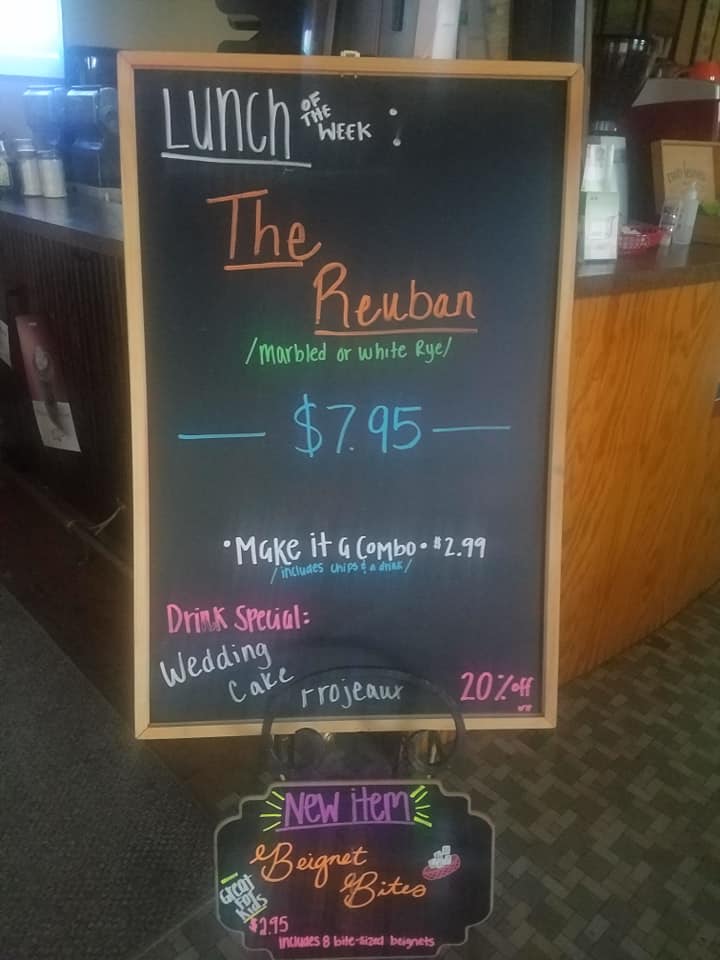 Lunch OF THE WEEK :
The
Reuban
/Marbled or white Rye/
$7.95
• Make it a Combo • $2.99
/includes chips & a drink/
Drink Special:
Wedding
Cake rrojeaux 20% off
New item
Beignet
Bites
Great
For
Kids
$2.95
includes 8 bite-sized beignets